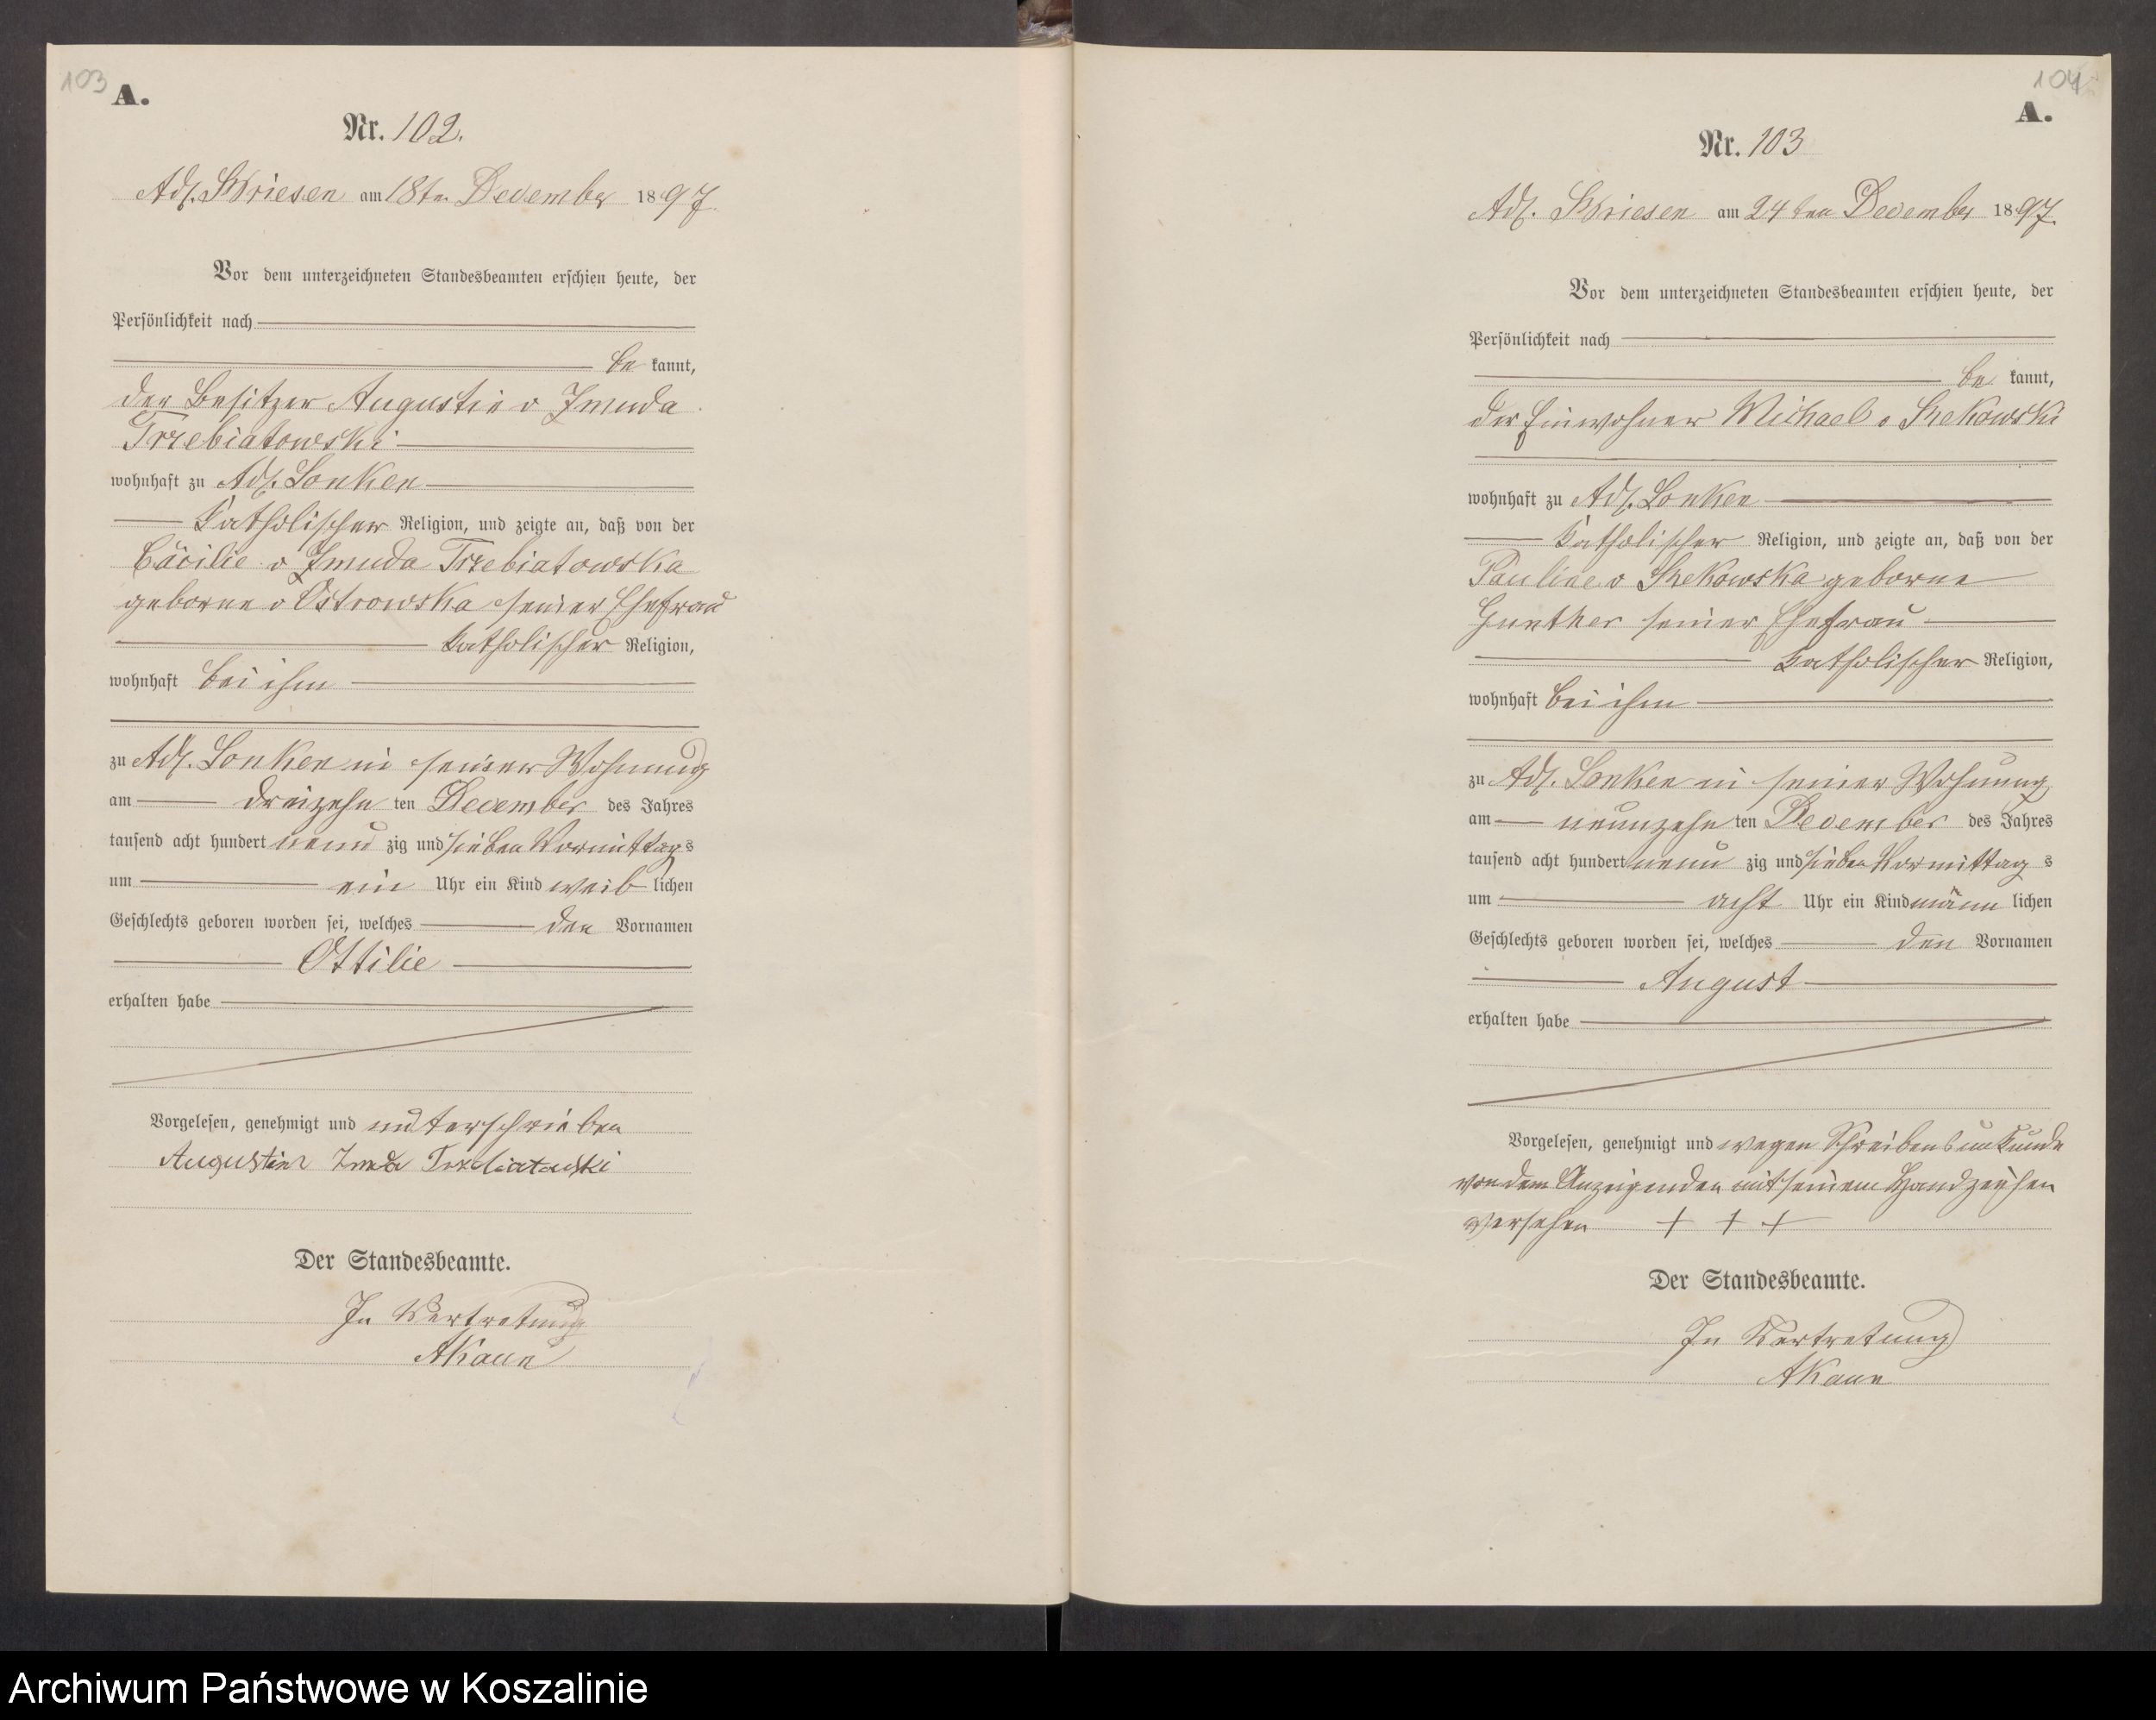 103
A.
Nr. 102.
Adl. Briesen am 18ten December 1897.
Vor dem unterzeichneten Standesbeamten erschien heute, der
Persönlichkeit nach
be kannt,
der Besitzer Augustin v Zmuda
Trzebiatowski
wohnhaft zu Adl. Lonken
katholischer Religion, und zeigte an, daß von der
Cäcilie v Zmuda Trzebiatowska
geborne v Ostrowska seiner Ehefrau
katholischer Religion,
wohnhaft bei ihm
zu Adl. Lonken in seiner Wohnung
am dreizehn ten December des Jahres
tausend acht hundert neun zig und sieben Vormittag s
um ein Uhr ein Kind weib lichen
Geschlechts geboren worden sei, welches den Vornamen
Ottilie
erhalten habe
Vorgelesen, genehmigt und unterschrieben
Augustin Zmuda Trzebiatowski
Der Standesbeamte.
In Vertretung
AKaun
104
A.
Nr. 103
Adl. Briesen am 24ten December 1897.
Vor dem unterzeichneten Standesbeamten erschien heute, der
Persönlichkeit nach
be kannt,
der Einwohner Michael v
wohnhaft zu Adl. Lonken
katholischer Religion, und zeigte an, daß von der
Pauline v geborne
Gunther seiner Ehefrau
katholischer Religion,
wohnhaft bei ihm
zu Adl. Lonken in seiner Wohnung
am neunzehn ten December des Jahres
tausend acht hundert neun zig und sieben Vormittag s
um acht Uhr ein Kind männ lichen
Geschlechts geboren worden sei, welches den Vornamen
August
erhalten habe
Vorgelesen, genehmigt und wegen Schreibensunkunde
von dem Anzeigenden mit seinem Handzeichen
versehen + + +
Der Standesbeamte.
In Vertretung
AKaun
Archiwum Państwowe w Koszalinie